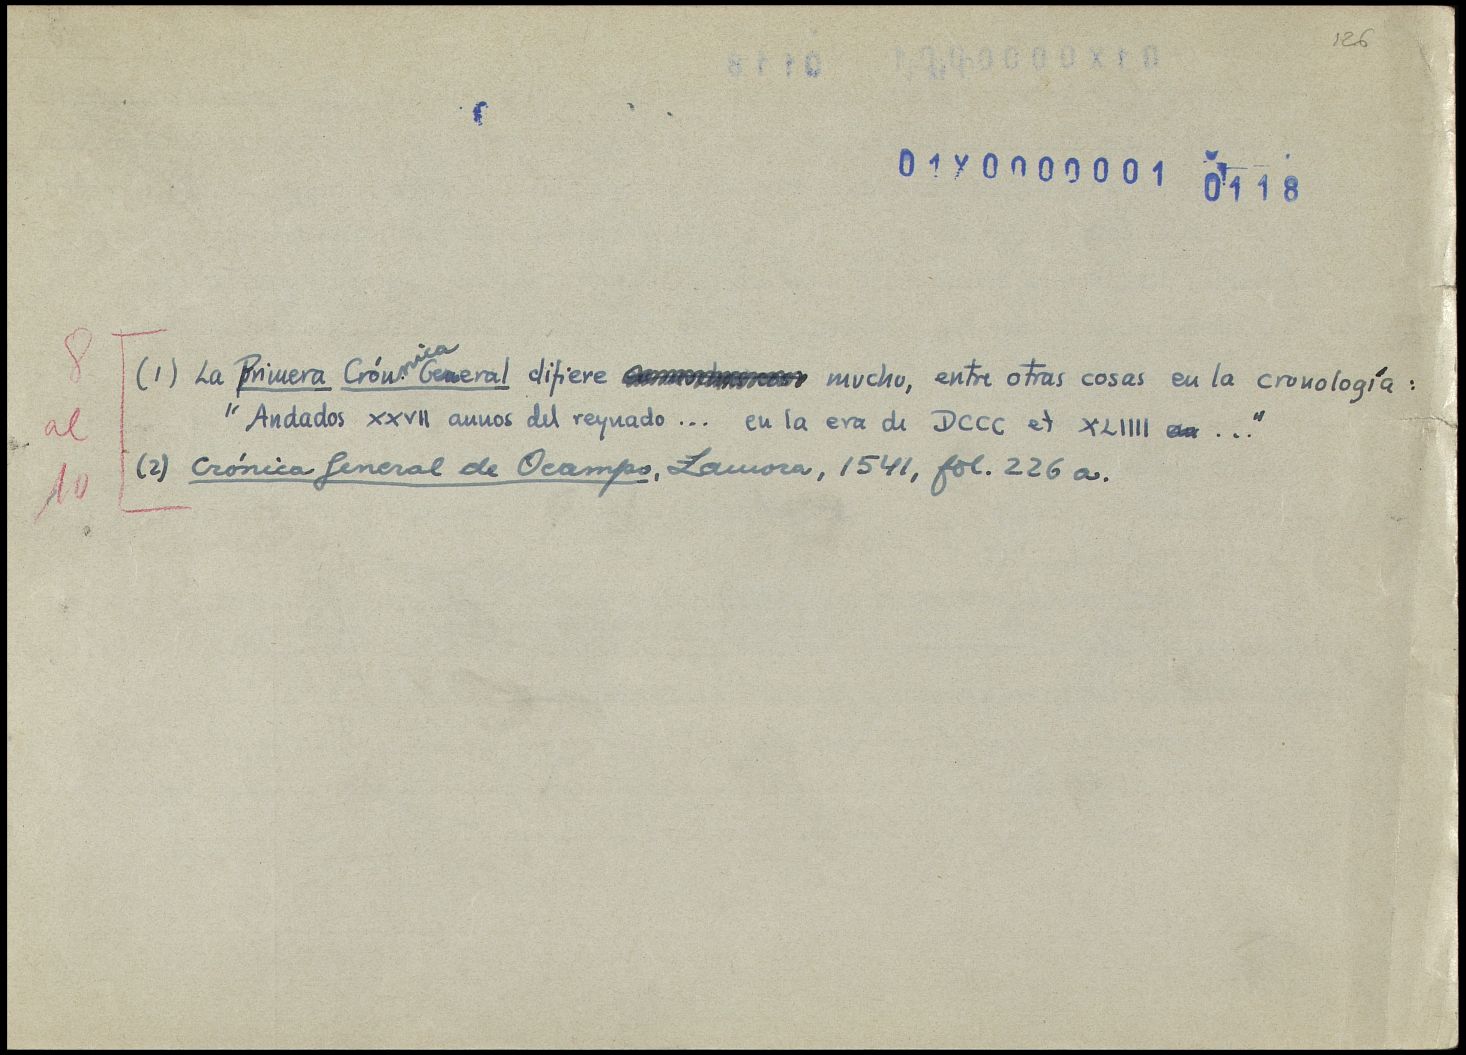 126
01X0000001 0118
(1) La Primera Crónica General difiere mucho, entre otras cosas en la cronología:
"Andados XXVII annos del reynado ... en la era de DCCC et XLIIII ..."
(2) Crónica General de Ocampo, Zamora, 1541, fol. 226 a.
8
al
10